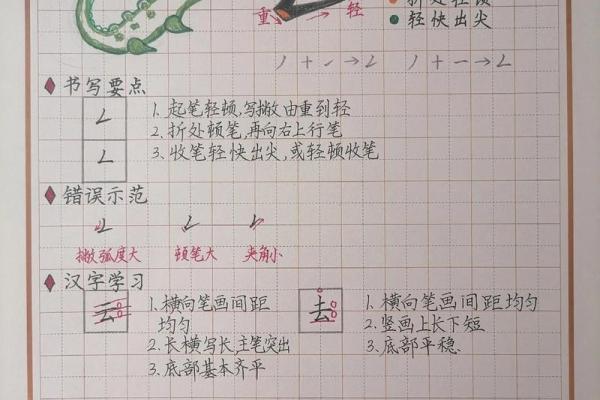 折处轻顿
重 轻
轻快出尖
书写要点
1. 起笔轻顿,写撇由重到轻
2. 折处顿笔,再向右上行笔
3. 收笔轻快出尖,或轻顿收笔
错误示范
撇弧度大 顿笔大 夹角小
汉字学习
云 1. 横向笔画间距
均匀
2. 长横写长,主笔突出
3. 底部基本齐平
去 1. 横向笔画间距均匀
2. 竖画上长下短
3. 底部平稳.